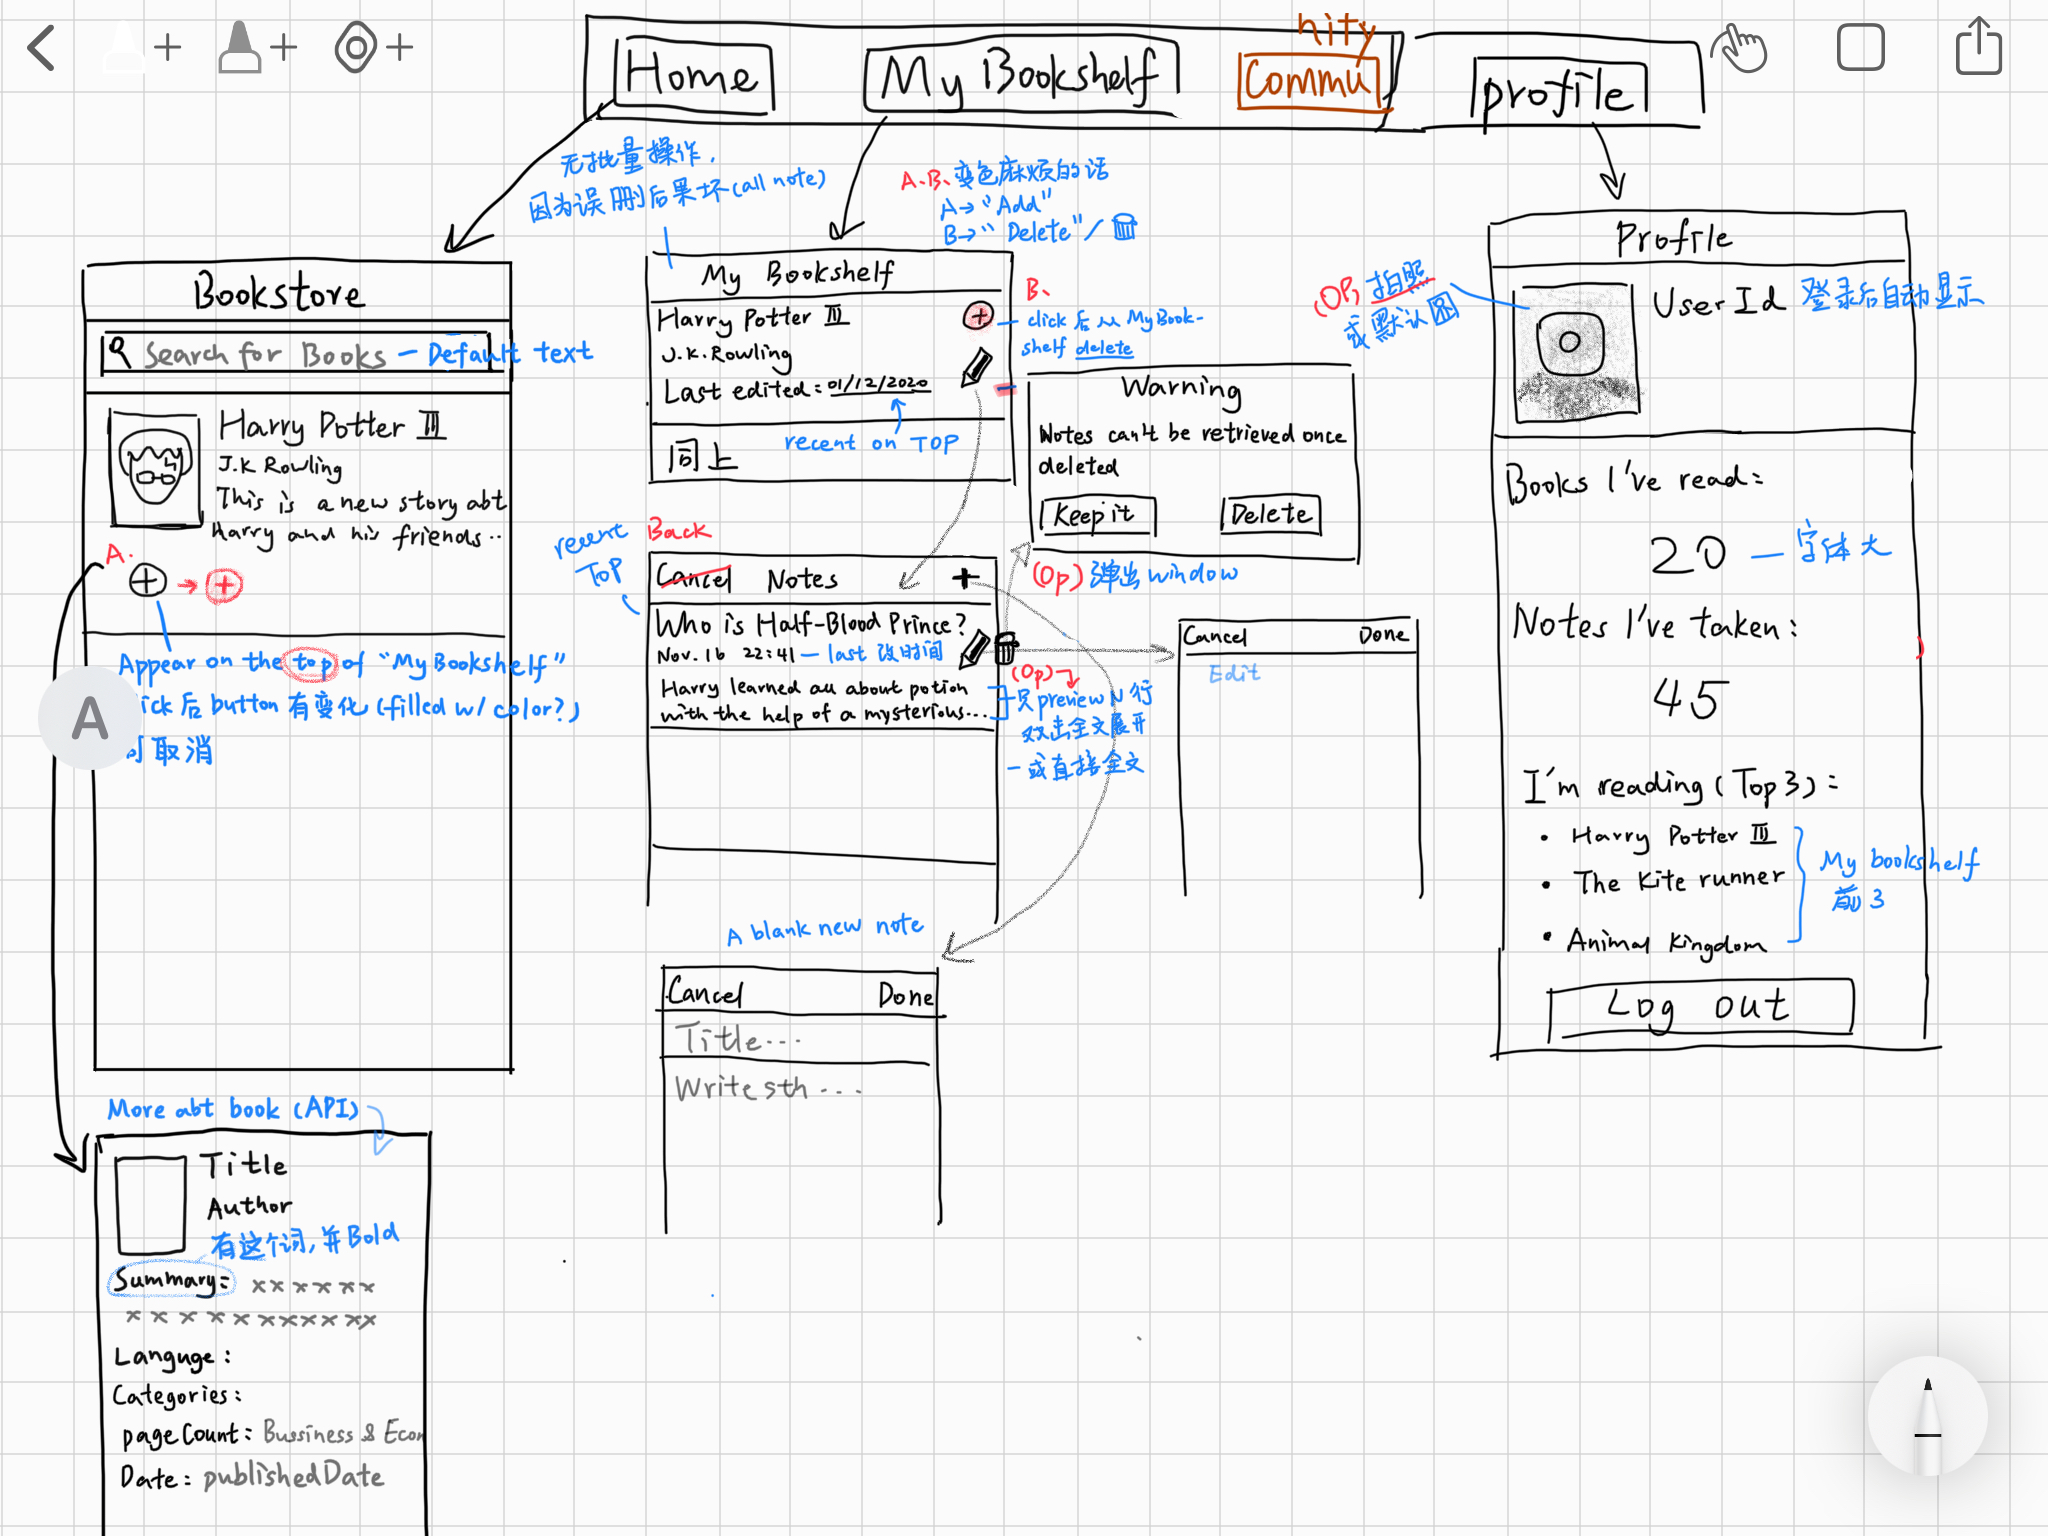 Home
My Bookshelf
Commu
nity
profile
无批量操作,
因为误删后果坏(all note)
A.B. 变色麻烦的话
A→"Add"
B→"Delete"/
Bookstore
Search for Books
— Default text
Harry Potter III
J.K Rowling
This is a new story abt
Harry and his friends..
A.
Appear on the top of "My Bookshelf"
ick 后 button 有变化 (filled w/ color?)
可取消
A
More abt book (API)
Title
Author
有这个词,并Bold
Summary: xx x x x x
x x x x x x x x x x x
Languge:
Categories:
pageCount: Bussiness & Econ
Date: publishedDate
My Bookshelf
Harry Potter III
J.K. Rowling
Last edited: 01/12/2020
recent on TOP
同上
B、
click 后 从 My Book-
shelf delete
Warning
Notes can't be retrieved once
deleted
Keep it
Delete
(Op) 弹出 window
recent
ToP
Back
Cancel Notes +
Who is Half-Blood Prince?
Nov. 16 22:41 — last 改时间
Harry learned all about potion
with the help of a mysterious...
(Op)
只 preview N 行
双击全文展开
— 或直接全文
Cancel Done
Edit
A blank new note
Cancel Done
Title...
Write sth ...
Profile
(OP) 拍照
或默认图
User Id 登录后自动显示
Books I've read:
20 — 字体大
Notes I've taken:
45
I'm reading (Top 3):
• Harry Potter III
• The Kite runner
• Animal Kingdom
My bookshelf
前 3
Log out